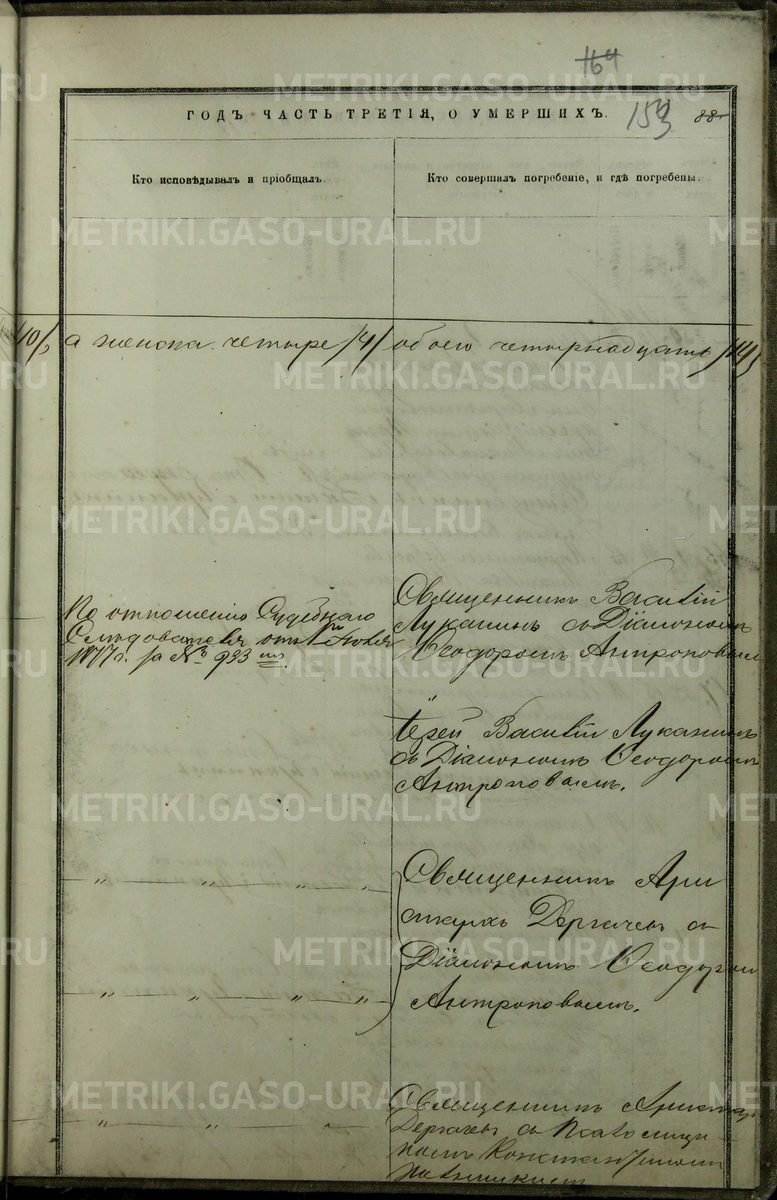 164
ГОДЪ ЧАСТЬ ТРЕТІЯ, О УМЕРШИХЪ.
153
88
Кто исповѣдывалъ и пріобщалъ.
Кто совершалъ погребеніе, и гдѣ погребены.
METRIKI.GASO-URAL.RU
/10/, а женска четыре /4/ обоего четырнадцать /14/
По отношенію Судебнаго
Слѣдователя отъ
1877 г. за № 933
Священникъ Василій
Луканинъ съ Діакономъ
Ѳеодоромъ Антроповымъ
Іерей Василій Луканинъ
съ Діакономъ Ѳеодоромъ
Антроповымъ.
Священникъ Ари
стархъ Дергачевъ съ
Діакономъ Ѳеодоромъ
Антроповымъ.
Священникъ Ариста
Дергачевъ съ Псаломщи
комъ Константиномъ